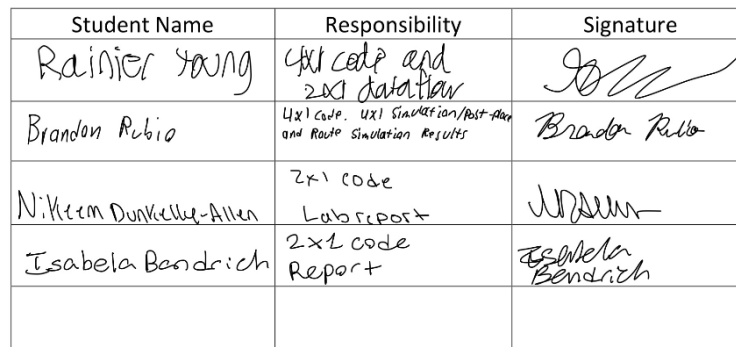 Student Name Responsibility Signature
Rainier Young 4x1 code and
2x1 dataflow
Brandon Rubio 4x1 code. 4x1 Simulation/Post-place
and Route Simulation Results Brandon Rubio
2x1 code
Nikeem Dunkelly-Allen Lab report
Isabela Bendrich 2x1 code Isabela
Report Bendrich